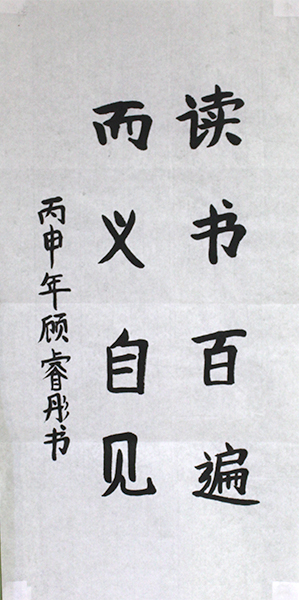 读书百遍
而义自见
丙申年顾睿彤书